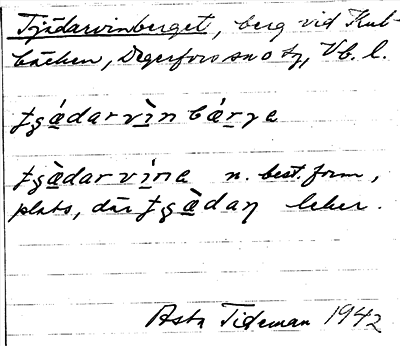 Tjädarvinberget, berg vid Kul-
bäcken, Degerfors sn o tg, Vb. l.
ʈʂǽdarvìnbǽrɣe
ʈʂædarvíne n. best. form,
plats, där ʈʂædaɳ leker.
Asta Tideman 1942